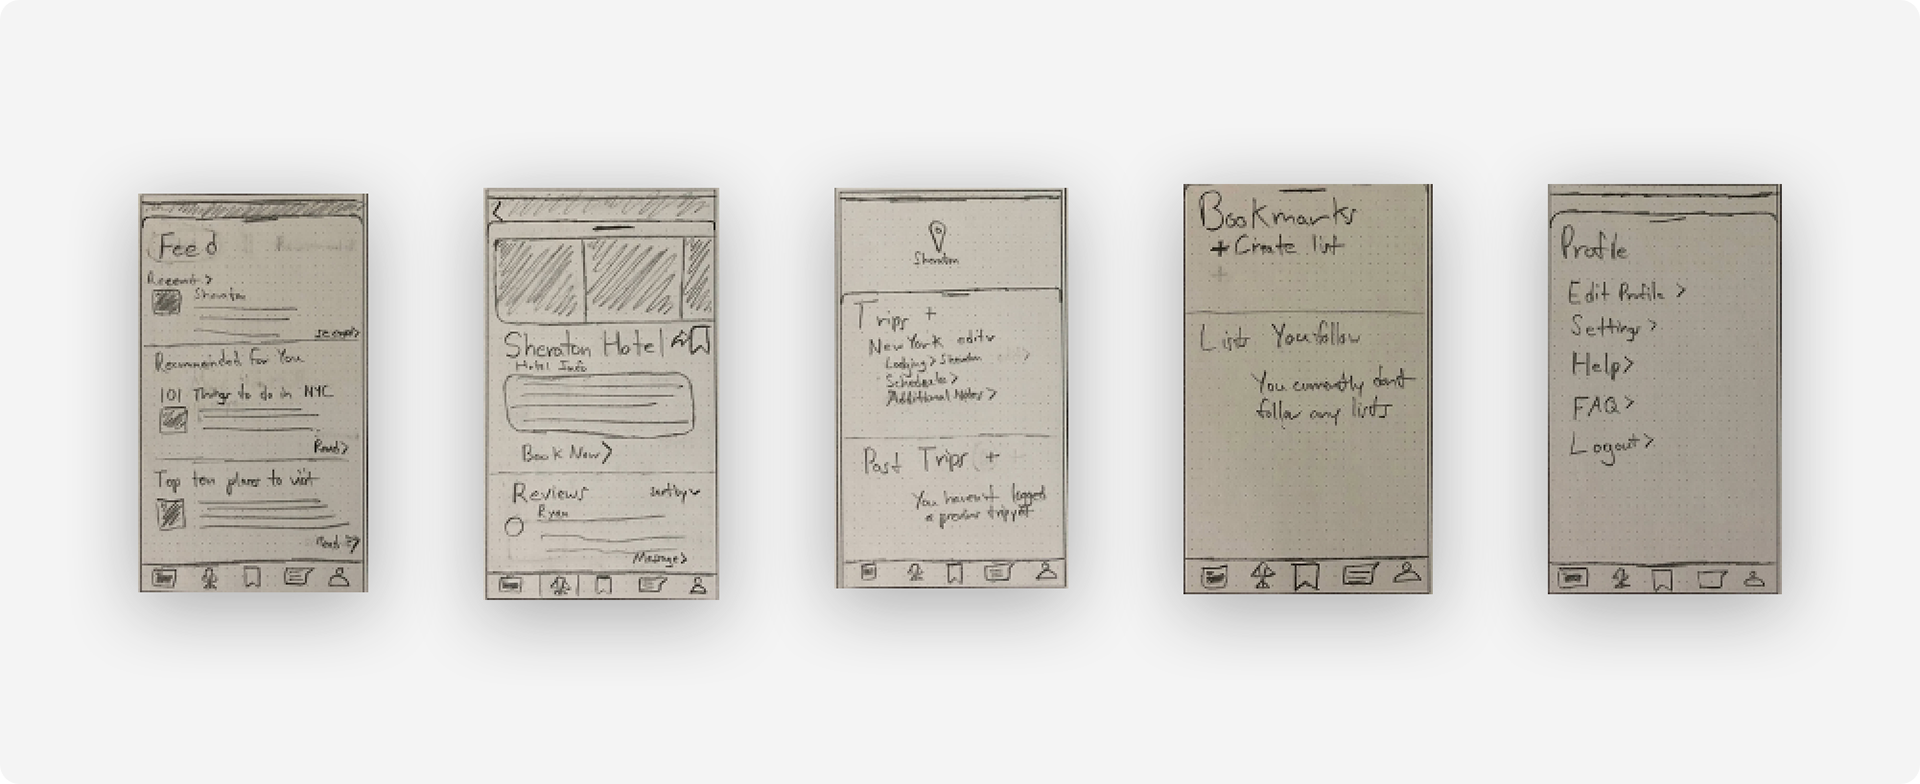 Feed
Recent >
Sheraton
see more >
Recommended For You
101 Things to do in NYC
Read >
Top ten places to visit
Read >
<
Sheraton Hotel
Hotel Info
Book Now >
Reviews
sort by
Ryan
Message >
Sheraton
Trips +
New York edit
Lodging > Sheraton
Schedule >
Additional Notes >
Past Trips +
You haven't logged
a previous trip yet
Bookmarks
+ Create list
Lists You follow
You currently don't
follow any lists
Profile
Edit Profile >
Settings >
Help >
FAQ >
Logout >